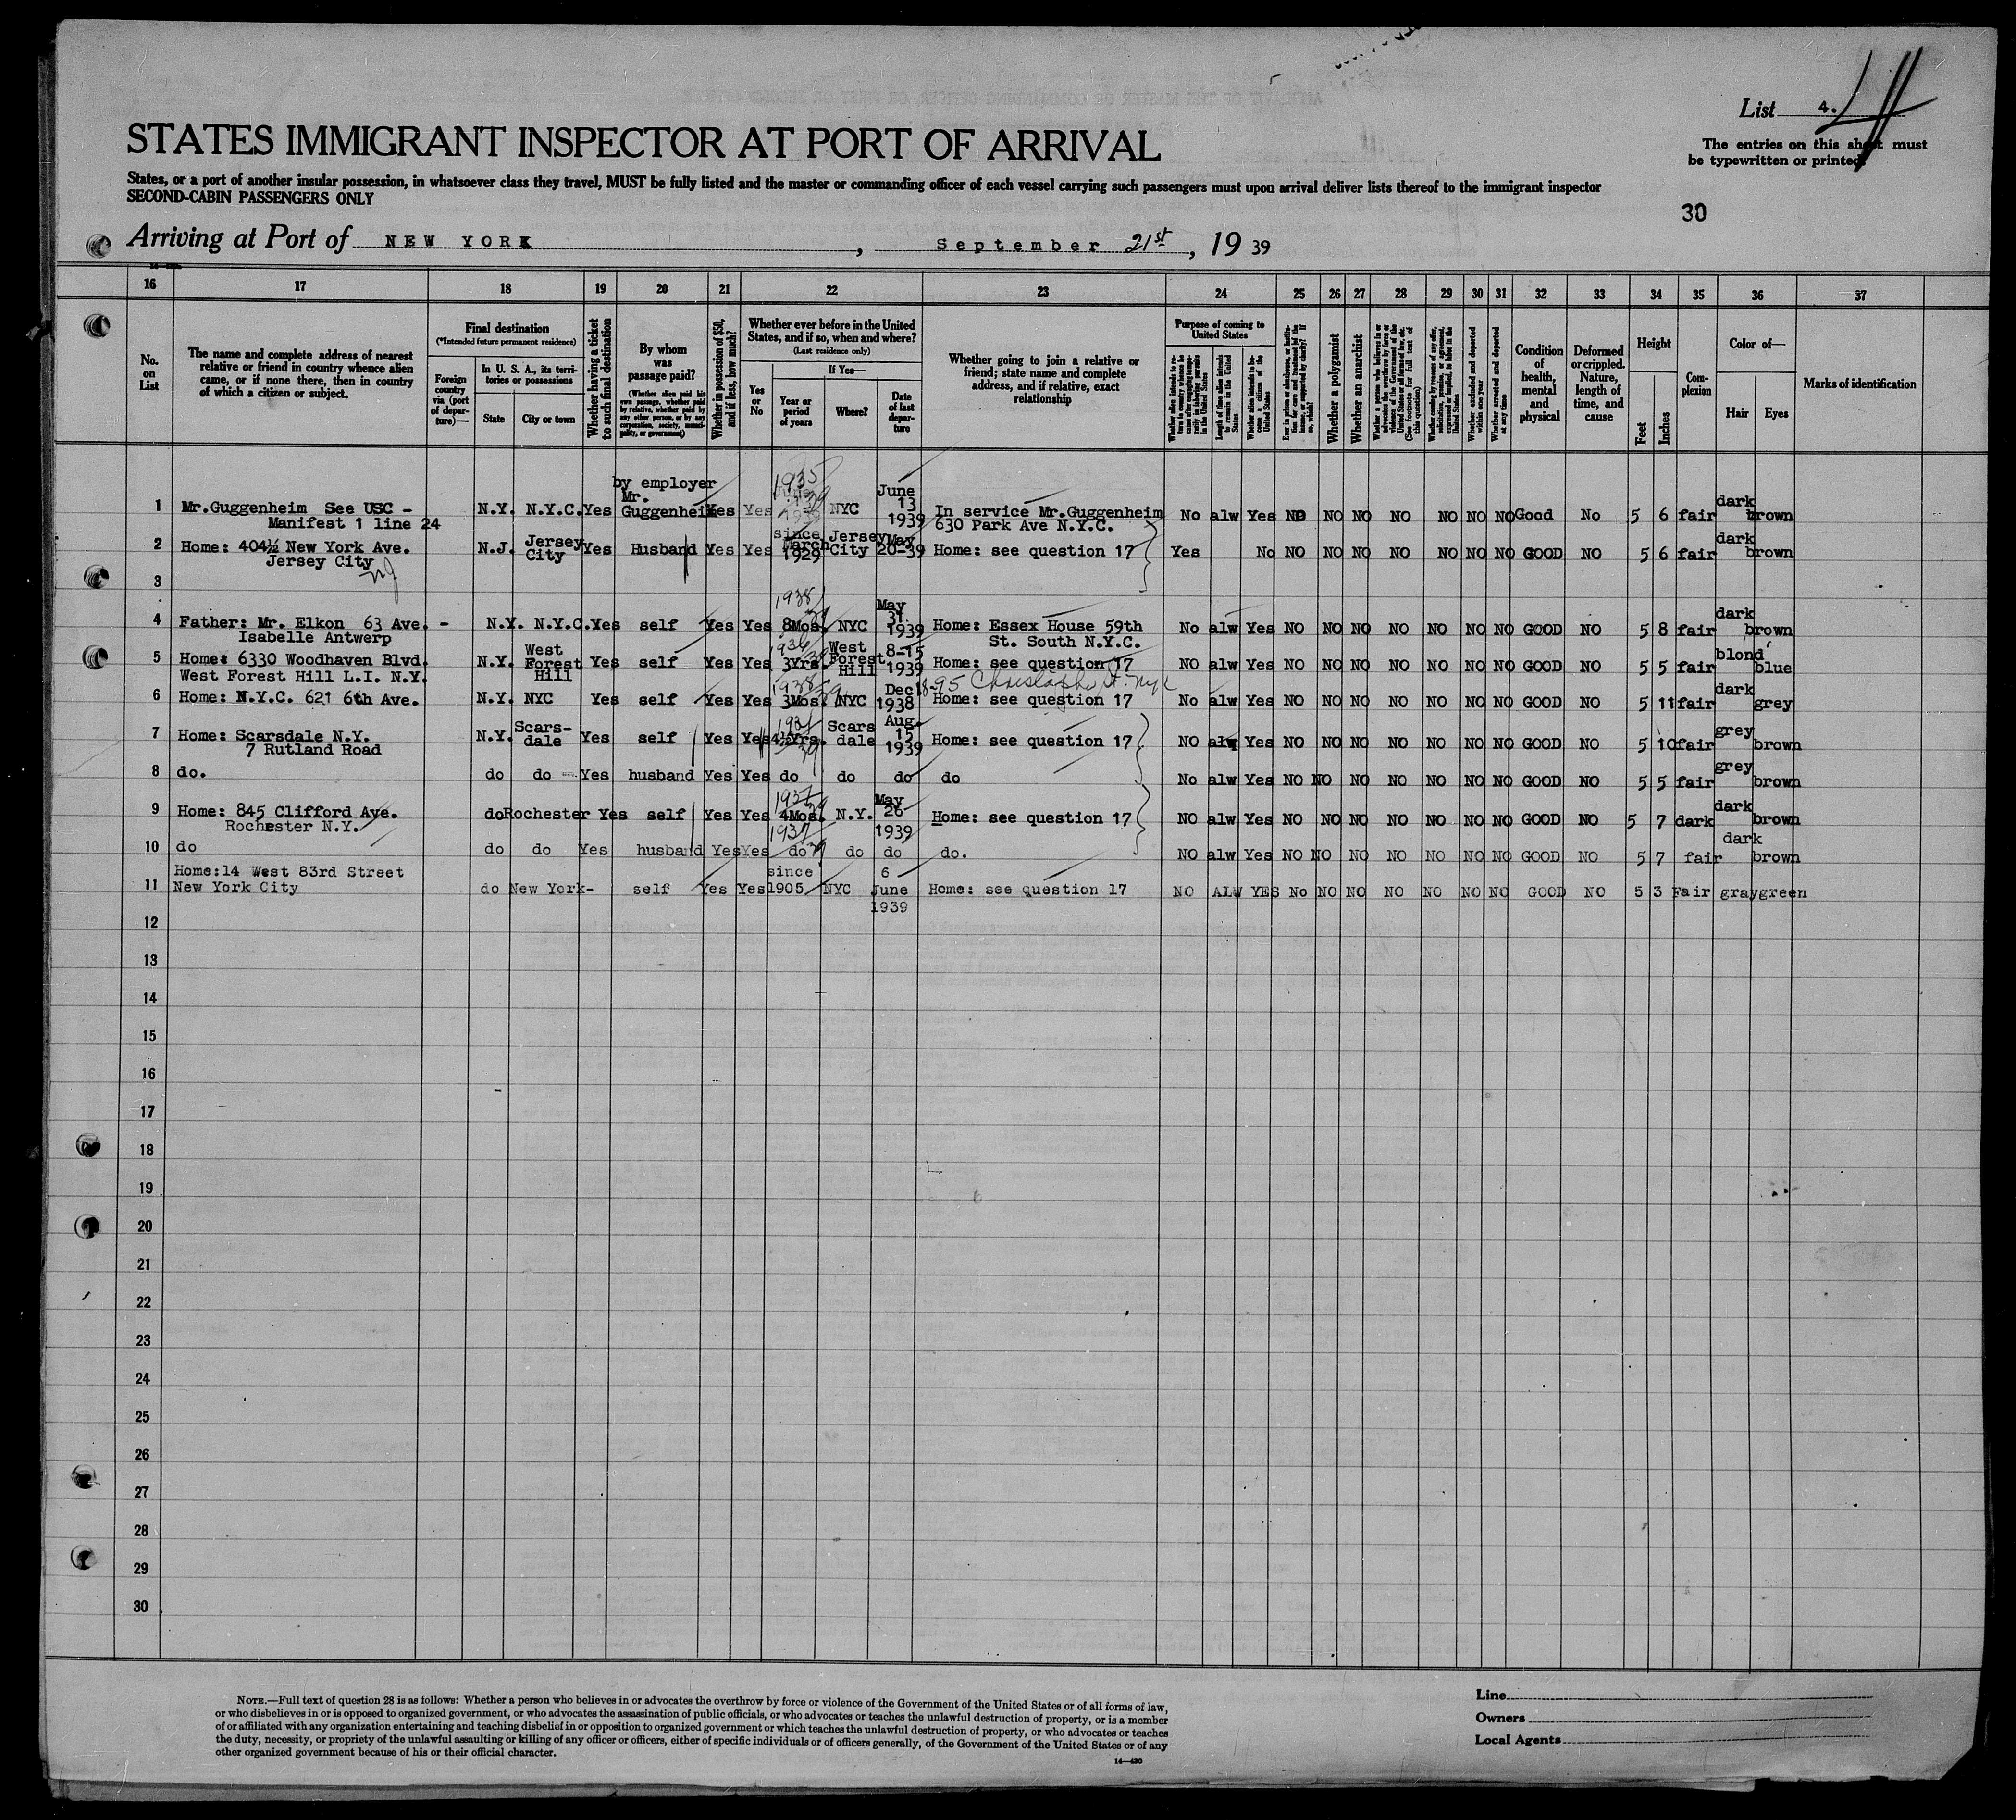 List 4.
The entries on this sheet must
be typewritten or printed
STATES IMMIGRANT INSPECTOR AT PORT OF ARRIVAL
States, or a port of another insular possession, in whatsoever class they travel, MUST be fully listed and the master or commanding officer of each vessel carrying such passengers must upon arrival deliver lists thereof to the immigrant inspector
SECOND-CABIN PASSENGERS ONLY
30
Arriving at Port of NEW YORK, September 21st, 19 39
16 17 18 19 20 21 22 23 24 25 26 27 28 29 30 31 32 33 34 35 36 37
No. on List
The name and complete address of nearest
relative or friend in country whence alien
came, or if none there, then in country
of which a citizen or subject.
Final destination
(*Intended future permanent residence)
Foreign country via (port of departure)—
In U. S. A., its territories or possessions
State
City or town
Whether having a ticket to such final destination
By whom was passage paid?
(Whether alien paid his own passage, whether paid by relative, whether paid by any other person, or by any corporation, society, municipality, or government)
Whether in possession of $50, and if less, how much?
Whether ever before in the United
States, and if so, when and where?
(Last residence only)
Yes or No
If Yes—
Year or period of years
Where?
Date of last departure
Whether going to join a relative or
friend; state name and complete
address, and if relative, exact
relationship
Purpose of coming to United States
Length of time alien intends to remain in the United States
Whether alien intends to become a citizen of the United States
Whether a polygamist
Whether an anarchist
(See footnote for full text of this question)
Whether excluded and deported within one year
Whether arrested and deported at any time
Condition of health, mental and physical
Deformed or crippled. Nature, length of time, and cause
Height
Feet
Inches
Complexion
Color of—
Hair
Eyes
Marks of identification
1 Mr.Guggenheim See USC - Manifest 1 line 24 N.Y. N.Y.C. Yes by employer Mr. Guggenheim Yes Yes 1935 1939 NYC June 13 1939 In service Mr.Guggenheim 630 Park Ave N.Y.C. No alw Yes NO NO NO NO NO NO NO Good No 5 6 fair dark brown
2 Home: 404½ New York Ave. Jersey City NJ N.J. Jersey City Yes Husband Yes Yes since March 1929 Jersey City May 20-39 Home: see question 17 Yes No NO NO NO NO NO NO NO GOOD NO 5 6 fair dark brown
3
4 Father: Mr. Elkon 63 Ave. - Isabelle Antwerp N.Y. N.Y.C. Yes self Yes Yes 1938 8Mos. NYC May 31. 1939 Home: Essex House 59th St. South N.Y.C. No alw Yes NO NO NO NO NO NO NO GOOD NO 5 8 fair dark brown
5 Home: 6330 Woodhaven Blvd. West Forest Hill L.I. N.Y. N.Y. West Forest Hill Yes self Yes Yes 1936 3Yrs. West Forest Hill 8-15 1939 Home: see question 17 NO alw Yes NO NO NO NO NO NO NO GOOD NO 5 5 fair blond blue
6 Home: N.Y.C. 621 6th Ave. N.Y. NYC Yes self Yes Yes 1938 3Mos. NYC Dec 18- 1938 95 Christopher St. NYC Home: see question 17 No alw Yes NO NO NO NO NO NO NO GOOD NO 5 11 fair dark grey
7 Home: Scarsdale N.Y. 7 Rutland Road N.Y. Scarsdale Yes self Yes Yes 1934 4½Yrs. Scarsdale Aug. 15 1939 Home: see question 17 NO alw Yes NO NO NO NO NO NO NO GOOD NO 5 10 fair grey brown
8 do. do do Yes husband Yes Yes do do do do No alw Yes NO NO NO NO NO NO NO GOOD NO 5 5 fair grey brown
9 Home: 845 Clifford Ave. Rochester N.Y. do Rochester Yes self Yes Yes 1937 4Mos. N.Y. May 26 1939 Home: see question 17 NO alw Yes NO NO NO NO NO NO NO GOOD NO 5 7 dark dark brown
10 do do do Yes husband Yes Yes 1937 do do do do. NO alw Yes NO NO NO NO NO NO NO GOOD NO 5 7 fair dark brown
11 Home:14 West 83rd Street New York City do New York- self Yes Yes since 1905 NYC 6 June 1939 Home: see question 17 NO ALW YES No NO NO NO NO NO NO GOOD NO 5 3 Fair gray green
12
13
14
15
16
17
18
19
20
21
22
23
24
25
26
27
28
29
30
NOTE.—Full text of question 28 is as follows: Whether a person who believes in or advocates the overthrow by force or violence of the Government of the United States or of all forms of law,
or who disbelieves in or is opposed to organized government, or who advocates the assassination of public officials, or who advocates or teaches the unlawful destruction of property, or is a member
of or affiliated with any organization entertaining and teaching disbelief in or opposition to organized government or which teaches the unlawful destruction of property, or who advocates or teaches
the duty, necessity, or propriety of the unlawful assaulting or killing of any officer or officers, either of specific individuals or of officers generally, of the Government of the United States or of any
other organized government because of his or their official character.
14—430
Line
Owners
Local Agents